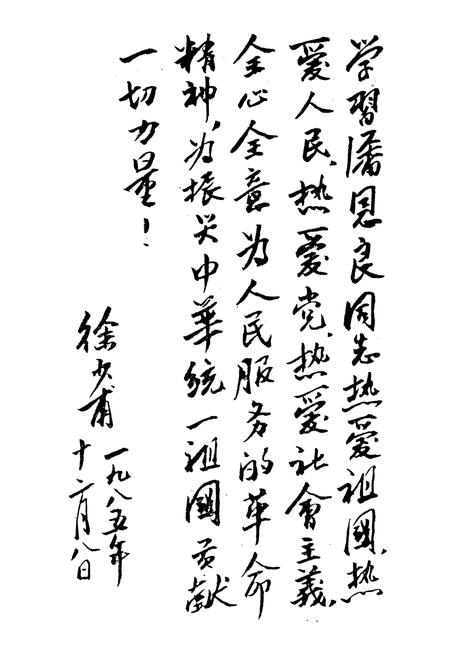 学習潘恩良同志热爱祖國、热
爱人民、热爱党、热爱社會主義、
全心全意为人民服务的革命
精神，为振兴中华統一祖國贡献
一切力量！
徐少甫
一九八五年
十二月八日